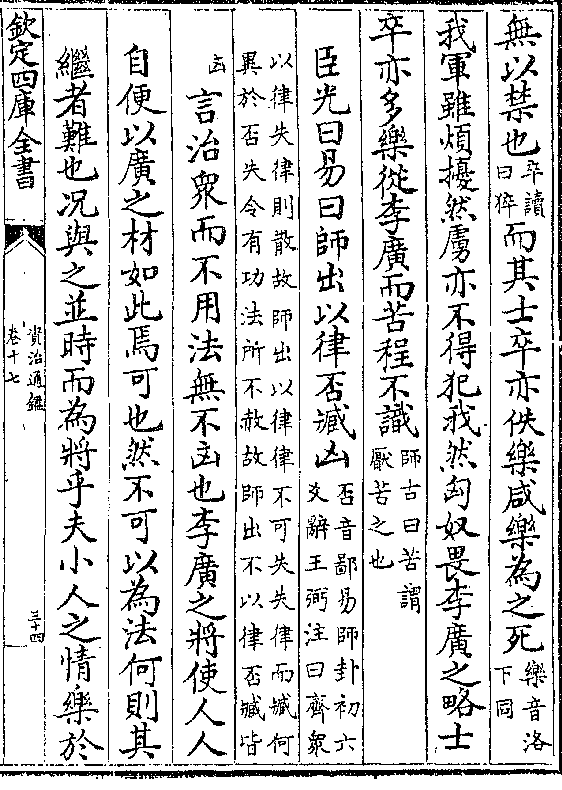 無以禁也卒讀曰猝而其士卒亦佚樂咸樂為之死樂音洛下同
我軍雖煩擾然虜亦不得犯我然匈奴畏李廣之略士
卒亦多樂從李廣而苦程不識師古曰苦謂厭苦之也
臣光曰易曰師出以律否臧凶否音鄙易師卦初六爻辭王弼注曰齊衆
以律失律則散故師出以律律不可失失律而臧何
異於否失令有功法所不赦故師出不以律否臧皆
凶言治衆而不用法無不凶也李廣之將使人人
自便以廣之材如此焉可也然不可以為法何則其
繼者難也况與之並時而為將乎夫小人之情樂於
欽定四庫全書
資治通鑑
卷十七
三十四